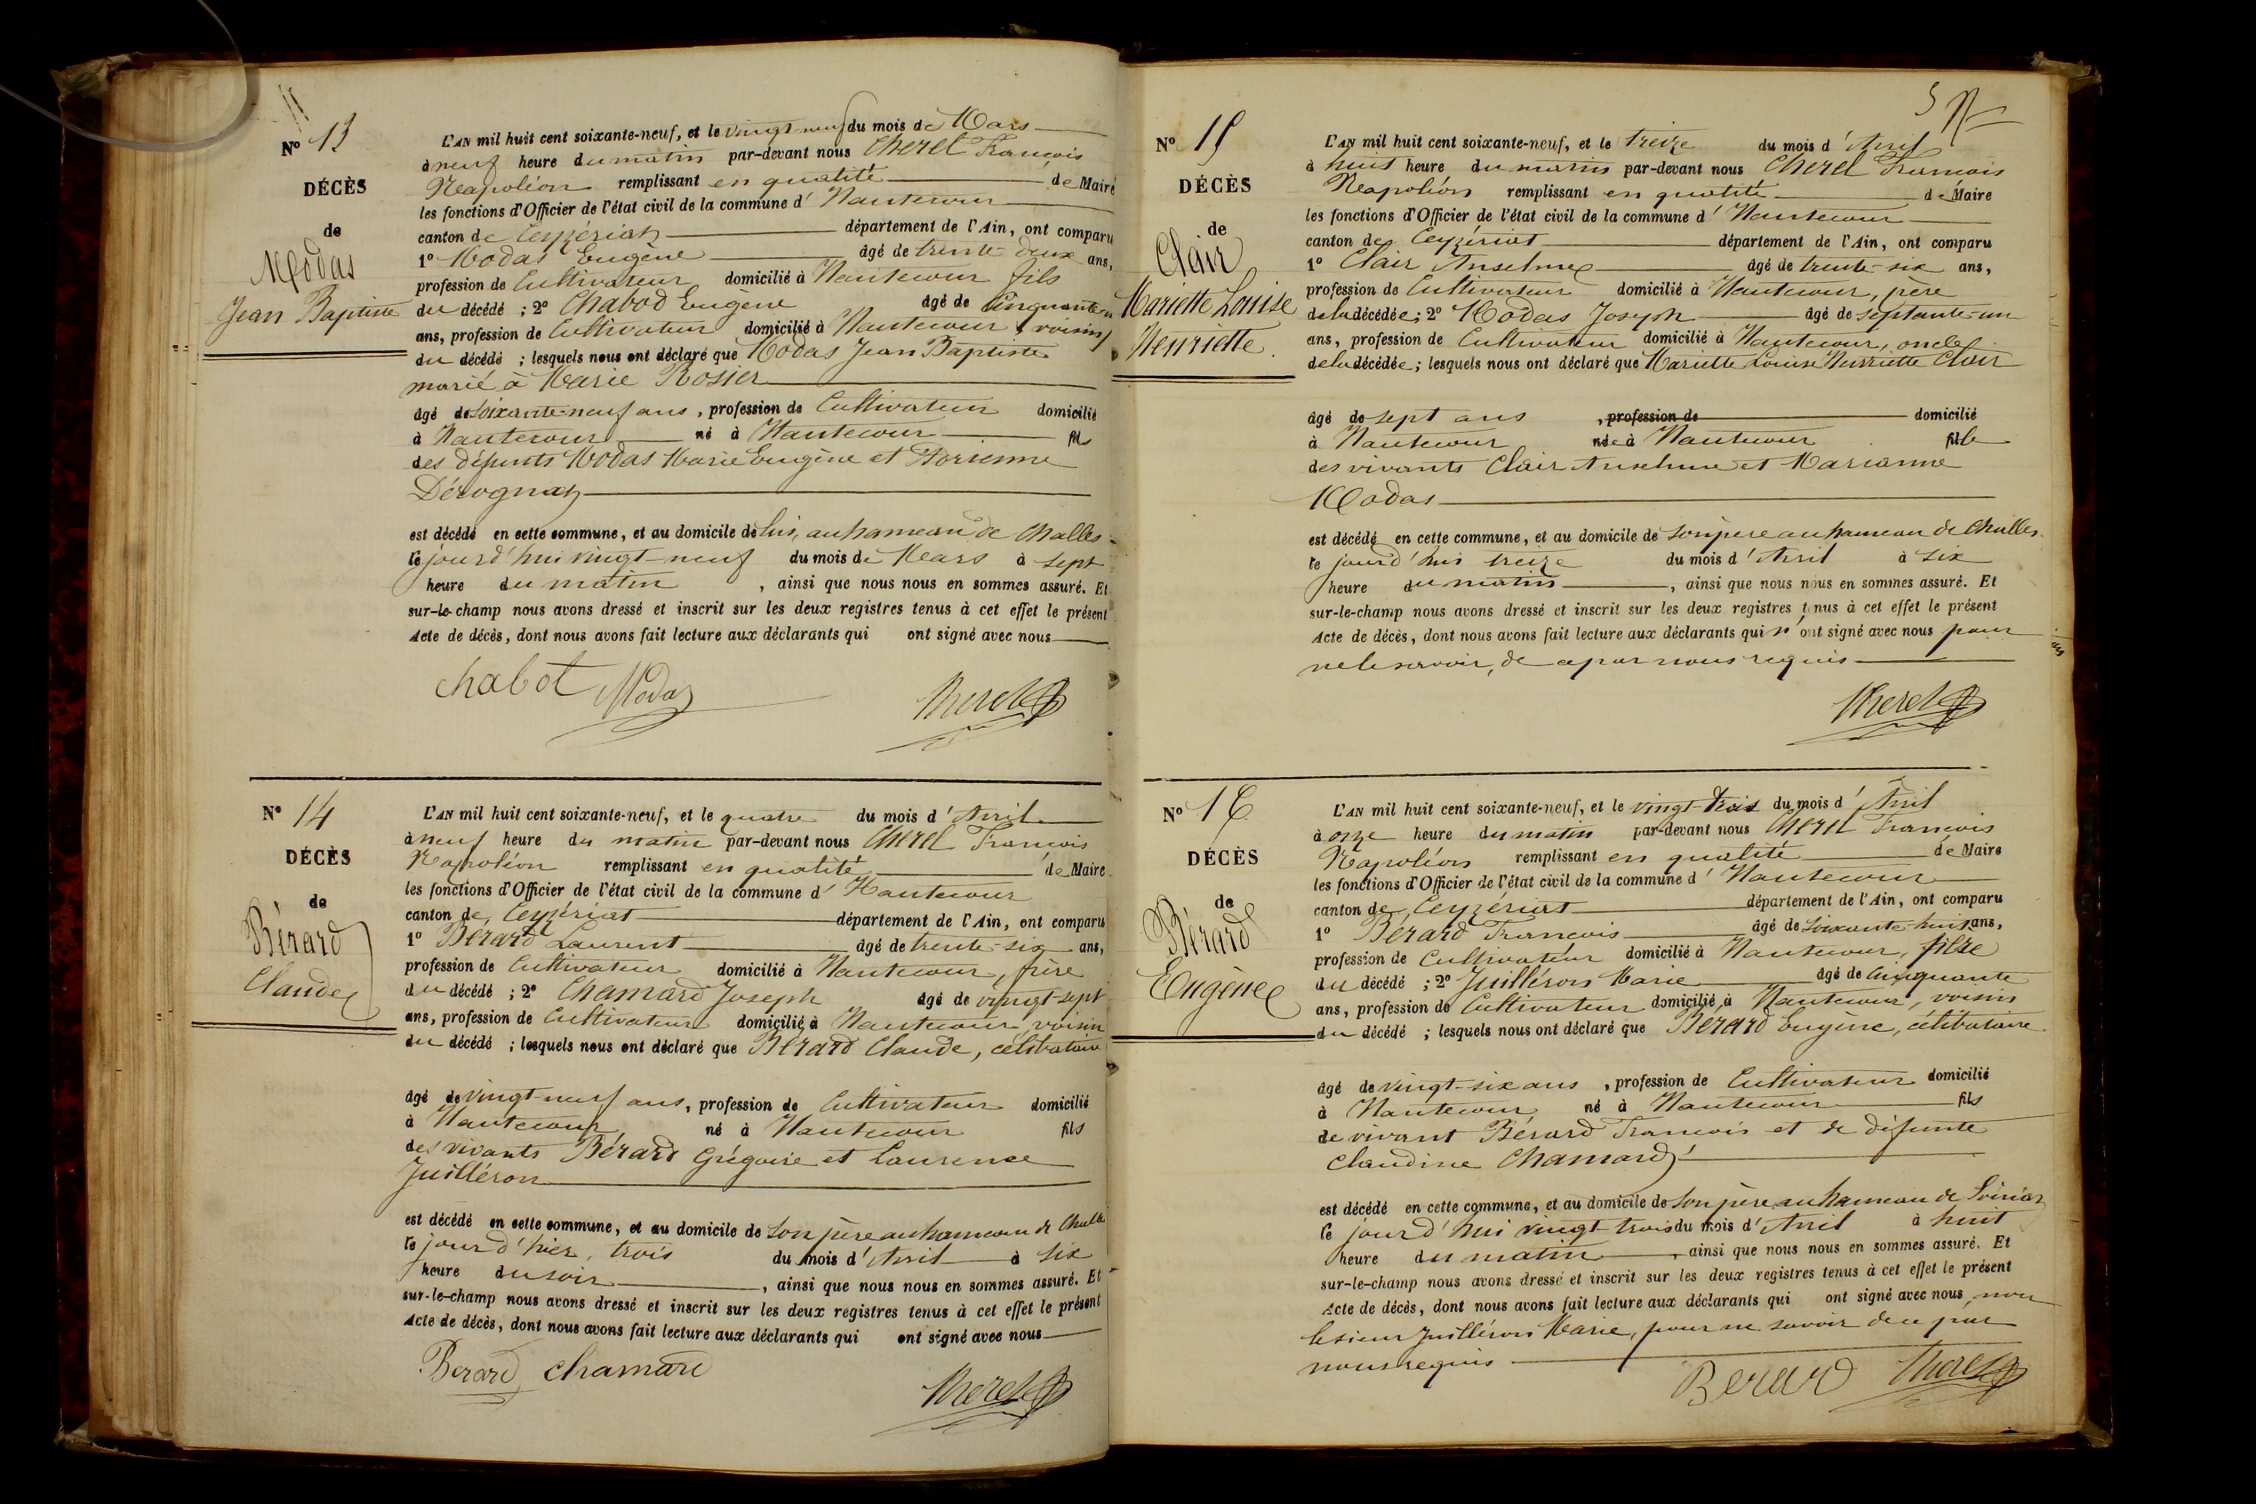 N° 13
DÉCÈS
de
Modas
Jean Baptiste
L'AN mil huit cent soixante-neuf, et le vingt neuf du mois de Mars
à neuf heure du matin par-devant nous Cherel François
Napoléon remplissant en qualité de Maire
les fonctions d'Officier de l'état civil de la commune d' Hautecour
canton de Ceyzériat département de l'Ain, ont comparu
1° Modas Eugène âgé de trente deux ans,
profession de Cultivateur domicilié à Hautecour fils
du décédé ; 2° Chabod Eugène âgé de Cinquante
ans, profession de Cultivateur domicilié à Hautecour, voisin
du décédé ; lesquels nous ont déclaré que Modas Jean Baptiste
marié à Marie Rosier
âgé de soixante-neuf ans, profession de Cultivateur domicilié
à Hautecour né à Hautecour fils
des défunts Modas Marie Eugène et
est décédé en cette commune, et au domicile de lui, au hameau de Challes
le jourd'hui vingt-neuf du mois de Mars à sept
heure du matin, ainsi que nous nous en sommes assuré. Et
sur-le-champ nous avons dressé et inscrit sur les deux registres tenus à cet effet le présent
Acte de décès, dont nous avons fait lecture aux déclarants qui ont signé avec nous
Chabot Modas Cherel
N° 14
DÉCÈS
de
Bérard
Claude
L'AN mil huit cent soixante-neuf, et le quatre du mois d'Avril
à neuf heure du matin par-devant nous Cherel François
Napoléon remplissant en qualité de Maire
les fonctions d'Officier de l'état civil de la commune d' Hautecour
canton de Ceyzériat département de l'Ain, ont comparu
1° Bérard Laurent âgé de trente-six ans,
profession de Cultivateur domicilié à Hautecour, frère
du décédé ; 2° Chamard Joseph âgé de vingt-sept
ans, profession de Cultivateur domicilié à Hautecour voisin
du décédé ; lesquels nous ont déclaré que Bérard Claude, célibataire
âgé de vingt-neuf ans, profession de Cultivateur domicilié
à Hautecour né à Hautecour fils
des vivants Bérard Grégoire et Laurence
Juilléron
est décédé en cette commune, et au domicile de son père au hameau de Challes
le jour d'hier, trois du mois d'Avril à six
heure du soir, ainsi que nous nous en sommes assuré. Et
sur-le-champ nous avons dressé et inscrit sur les deux registres tenus à cet effet le présent
Acte de décès, dont nous avons fait lecture aux déclarants qui ont signé avec nous
Berard Chamard Cherel
5
N° 15
DÉCÈS
de
Clair
Mariette Louise
Henriette
L'AN mil huit cent soixante-neuf, et le treize du mois d'Avril
à huit heure du matin par-devant nous Cherel François
Napoléon remplissant en qualité de Maire
les fonctions d'Officier de l'état civil de la commune d' Hautecour
canton de Ceyzériat département de l'Ain, ont comparu
1° Clair Anselme âgé de trente-six ans,
profession de Cultivateur domicilié à Hautecour, père
de la décédée; 2° Modas Joseph âgé de septante-un
ans, profession de Cultivateur domicilié à Hautecour, oncle
de la décédée; lesquels nous ont déclaré que Mariette Louise Henriette Clair
âgé de sept ans, profession de domicilié
à Hautecour née à Hautecour fille
des vivants Clair Anselme et Marianne
Modas
est décédé en cette commune, et au domicile de son père au hameau de Challes
le jourd'hui treize du mois d'Avril à six
heure du matin, ainsi que nous nous en sommes assuré. Et
sur-le-champ nous avons dressé et inscrit sur les deux registres tenus à cet effet le présent
Acte de décès, dont nous avons fait lecture aux déclarants qui n'ont signé avec nous pour
ne le savoir, de ce par nous requis
Cherel
N° 16
DÉCÈS
de
Bérard
Eugène
L'AN mil huit cent soixante-neuf, et le vingt-trois du mois d'Avril
à onze heure du matin par-devant nous Cherel François
Napoléon remplissant en qualité de Maire
les fonctions d'Officier de l'état civil de la commune d' Hautecour
canton de Ceyzériat département de l'Ain, ont comparu
1° Bérard François âgé de soixante-huit ans,
profession de Cultivateur domicilié à Hautecour, père
du décédé ; 2° Juilléron Marie âgé de Cinquante
ans, profession de Cultivateur domicilié à Hautecour, voisin
du décédé ; lesquels nous ont déclaré que Bérard Eugène, célibataire
âgé de vingt-six ans, profession de Cultivateur domicilié
à Hautecour né à Hautecour fils
de vivant Bérard François et de défunte
Claudine Chamard
est décédé en cette commune, et au domicile de son père, au hameau de
le jourd'hui vingt-trois du mois d'Avril à huit
heure du matin, ainsi que nous nous en sommes assuré. Et
sur-le-champ nous avons dressé et inscrit sur les deux registres tenus à cet effet le présent
Acte de décès, dont nous avons fait lecture aux déclarants qui ont signé avec nous, non
le sieur Juilléron Marie, pour ne savoir de ce par
nous requis
Berard Cherel